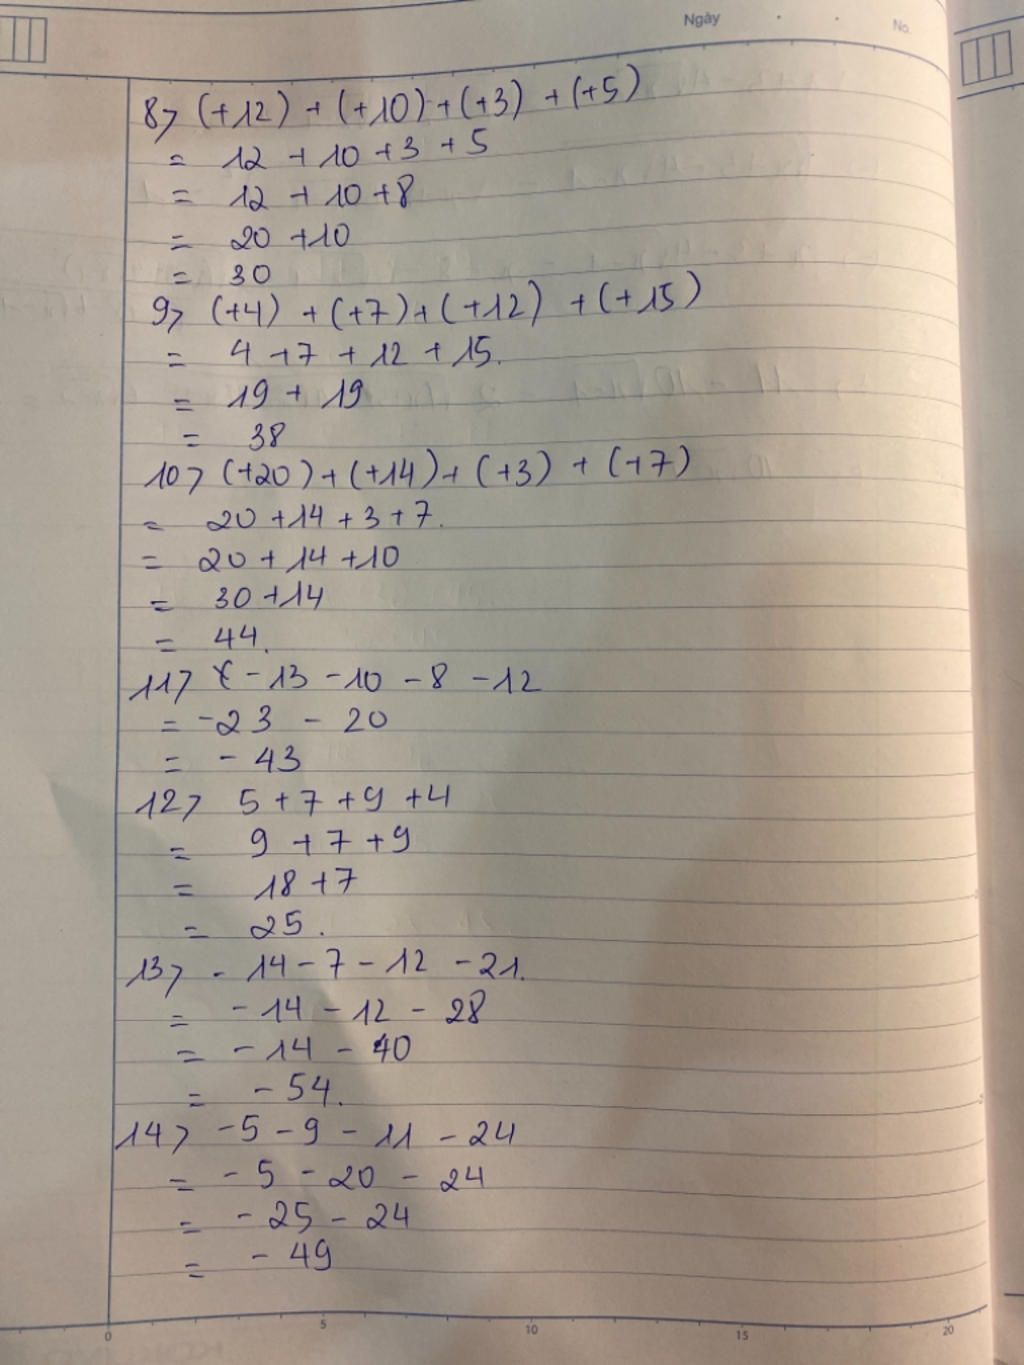 Ngày . . No.
8> (+12) + (+10) + (+3) + (+5)
= 12 + 10 + 3 + 5
= 12 + 10 + 8
= 20 + 10
= 30
9> (+4) + (+7) + (+12) + (+15)
= 4 + 7 + 12 + 15.
= 19 + 19
= 38
10> (+20) + (+14) + (+3) + (+7)
= 20 + 14 + 3 + 7.
= 20 + 14 + 10
= 30 + 14
= 44.
11> - 13 - 10 - 8 - 12
= -23 - 20
= - 43
12> 5 + 7 + 9 + 4
= 9 + 7 + 9
= 18 + 7
= 25.
13> - 14 - 7 - 12 - 21.
= - 14 - 12 - 28
= - 14 - 40
= - 54.
14> -5 - 9 - 11 - 24
= - 5 - 20 - 24
= - 25 - 24
= - 49
0 5 10 15 20